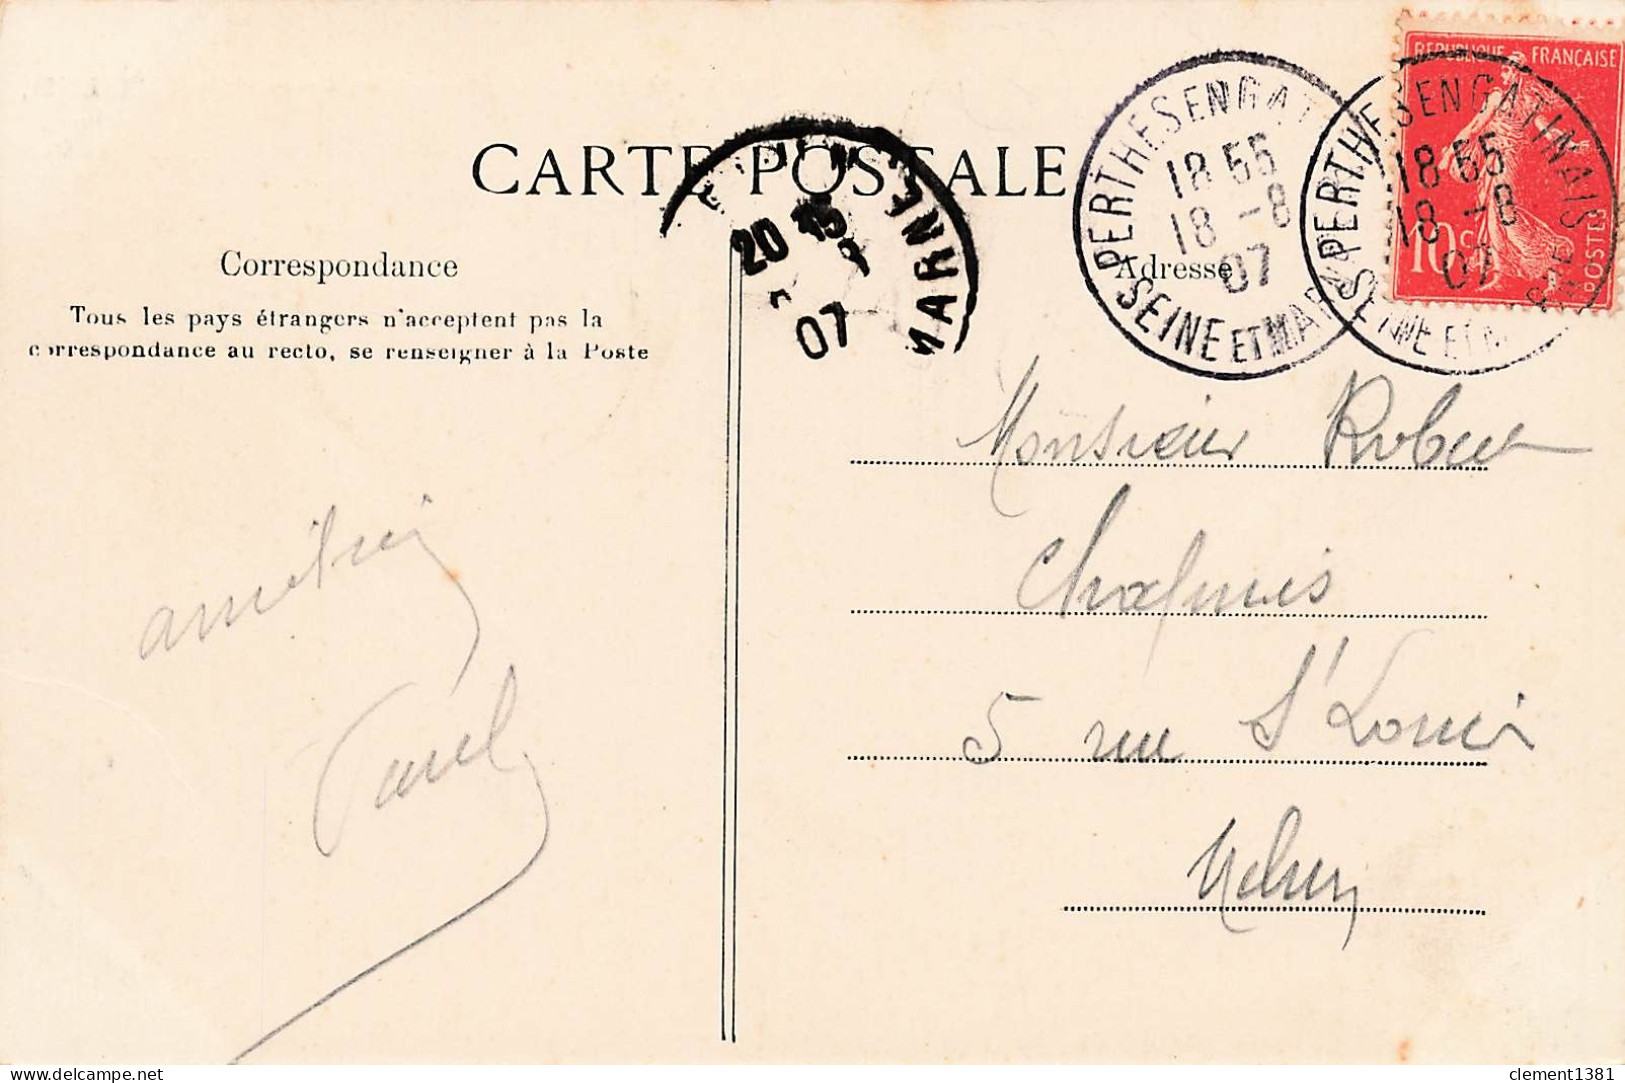 REPUBLIQUE FRANÇAISE
10 c
POSTES
PERTHES EN GATINAIS
18 55
18 -8
07
SEINE ET MARNE
PERTHES EN GATINAIS
18 55
18 -8
07
SEINE ET MARNE
20 15
07
MARNE
CARTE POSTALE
Correspondance
Adresse
Tous les pays étrangers n'acceptent pas la
correspondance au recto, se renseigner à la Poste
Monsieur Robert
5 rue St Louis
Melun
clement1381